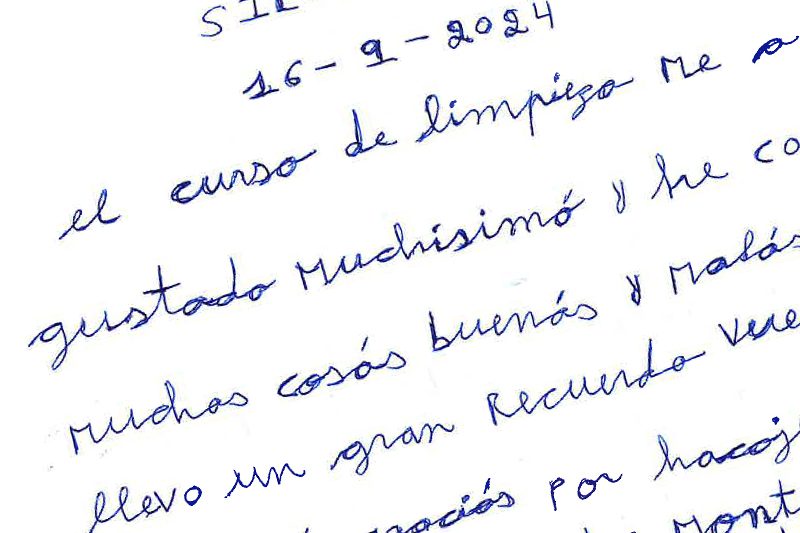 16-9-2024
el curso de limpieza me a
gustado muchisimó y he co
muchas cosás buenás y malás
llevo un gran Recuerdo
por